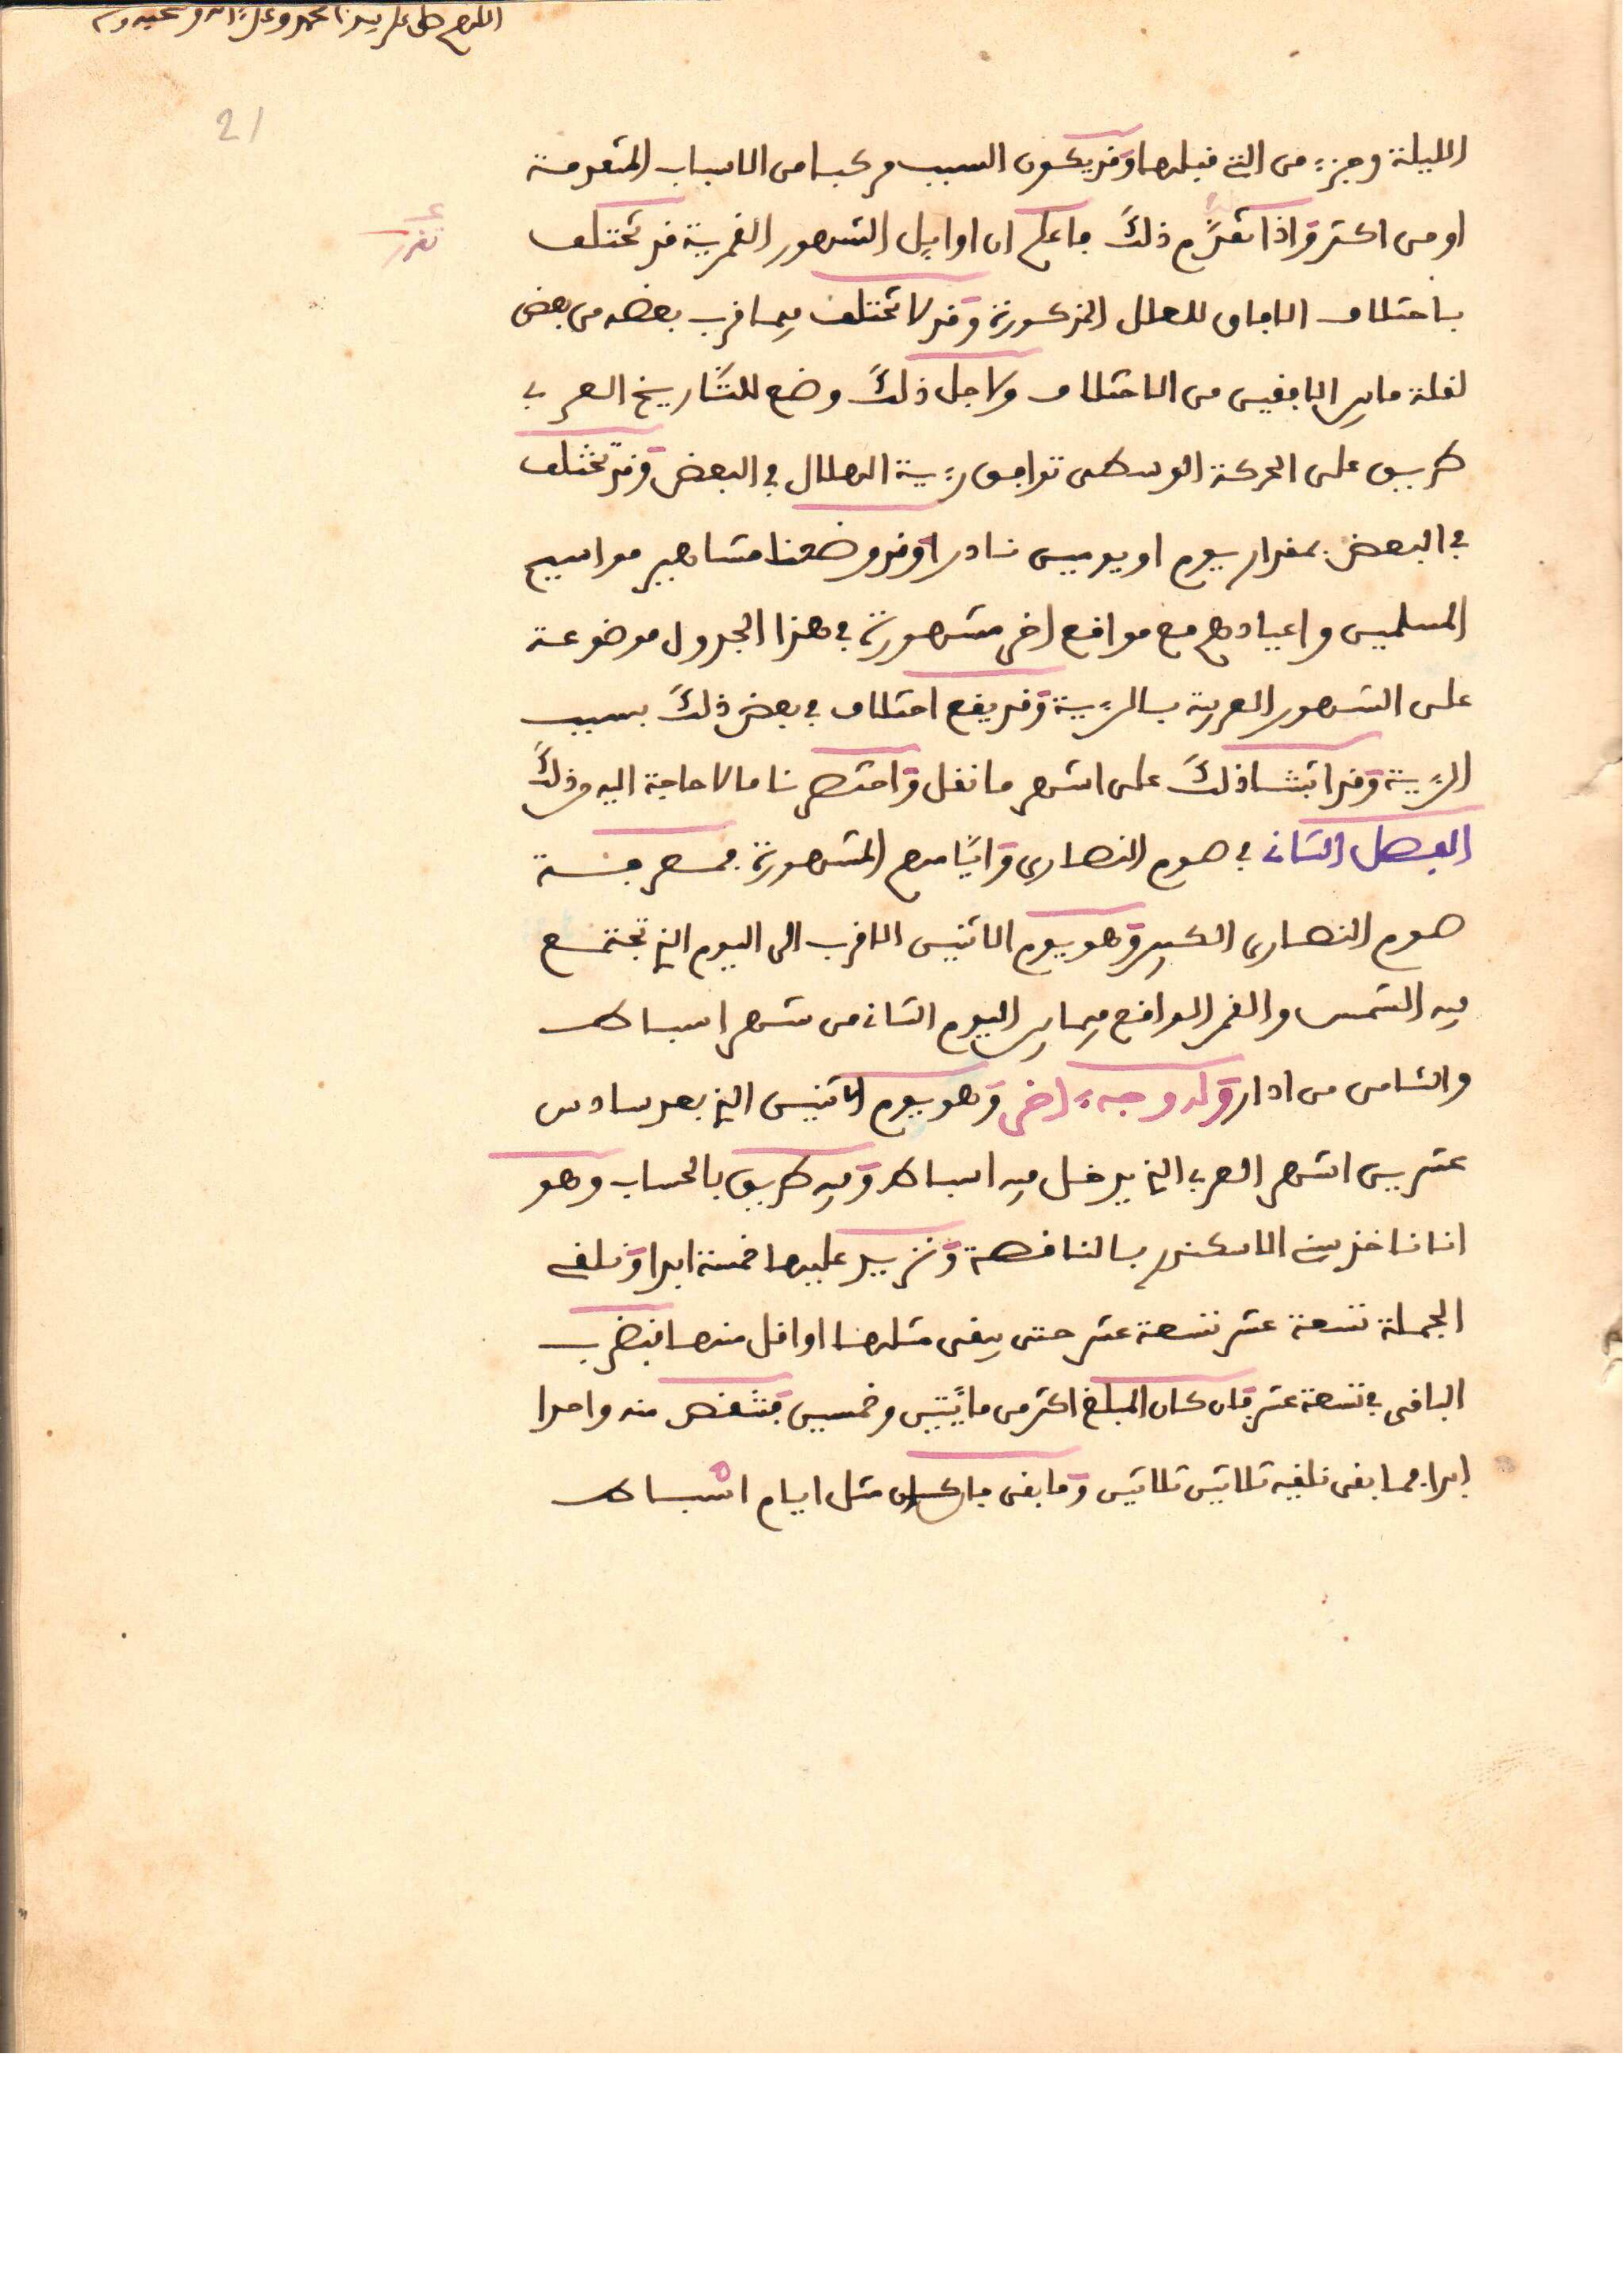 اللهم صل على سيدنا محمد وعلى آله وصحبه وسلم
21
الليلة وجزء من التي قبلها وقد يكون السبب مركبا من الاسباب المتقدمة
او من اكثر واذا تقدم ذلك فاعلم ان اوايل الشهور القمرية قد تختلف
تقرر
باختلاف الافاق للعلل المذكورة وقد لا تختلف فيما قرب بعضه من بعض
لقلة ما بين الافقين من الاختلاف ولاجل ذلك وضع للتاريخ العربي
طريق على الحركة الوسطى توافق رؤية الهلال في البعض وقد تختلف
في البعض بمقدار يوم او يومين نادرا وقد وضعنا مشاهير مواسيم
المسلمين واعيادهم مع مواقع اخر مشهورة في هذا الجدول موضوعة
على الشهور العربية بالرؤية وقد يقع اختلاف في بعض ذلك بسبب
الرؤية وقد اثبتنا ذلك على اشهر ما نقل واختصرنا ما لا حاجة اليه وذلك
الفصل الثاني في صوم النصارى وايامهم المشهورة فمعرفة
صوم النصارى الكبير وهو يوم الاثنين الاقرب الى اليوم الذي تجتمع
فيه الشمس والقمر الواقع فيما بين اليوم الثاني من شهر اسباط
والثامن من ادار وله وجه اخر وهو يوم الاثنين الذي بعد سادس
عشرين الشهر العربي الذي يدخل فيه اسباط وفيه طريق بالحساب وهو
اننا ناخذ سني الاسكندر بالناقصة ونزيد عليها خمسة ابدا ونلقي
الجملة تسعة عشر تسعة عشر حتى يبقى مثلها او اقل منها فنضرب
الباقي في تسعة عشر فان كان المبلغ اكثر من مائتين وخمسين فننقص منه واحدا
ابدا فما بقي نلقيه ثلاثين ثلاثين وما بقي فان كان مثل ايام اشباط